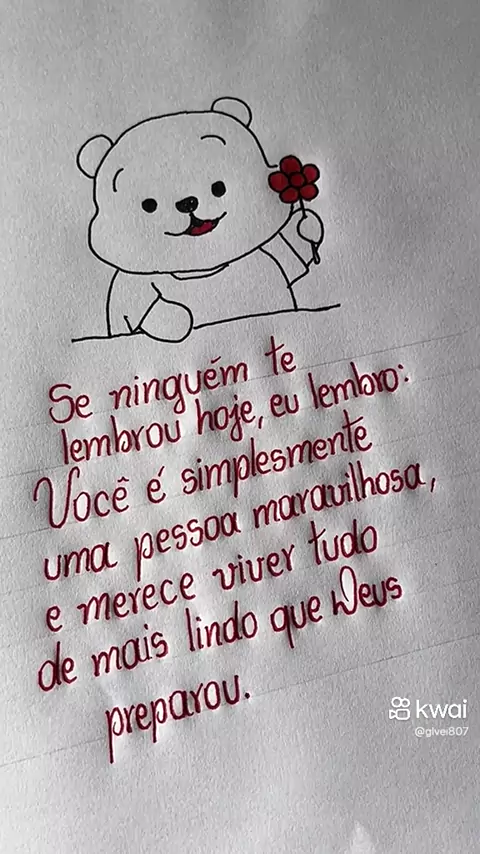 Se ninguém te
lembrou hoje, eu lembro:
Você é simplesmente
uma pessoa maravilhosa,
e merece viver tudo
de mais lindo que Deus
preparou.
kwai
@glvei807